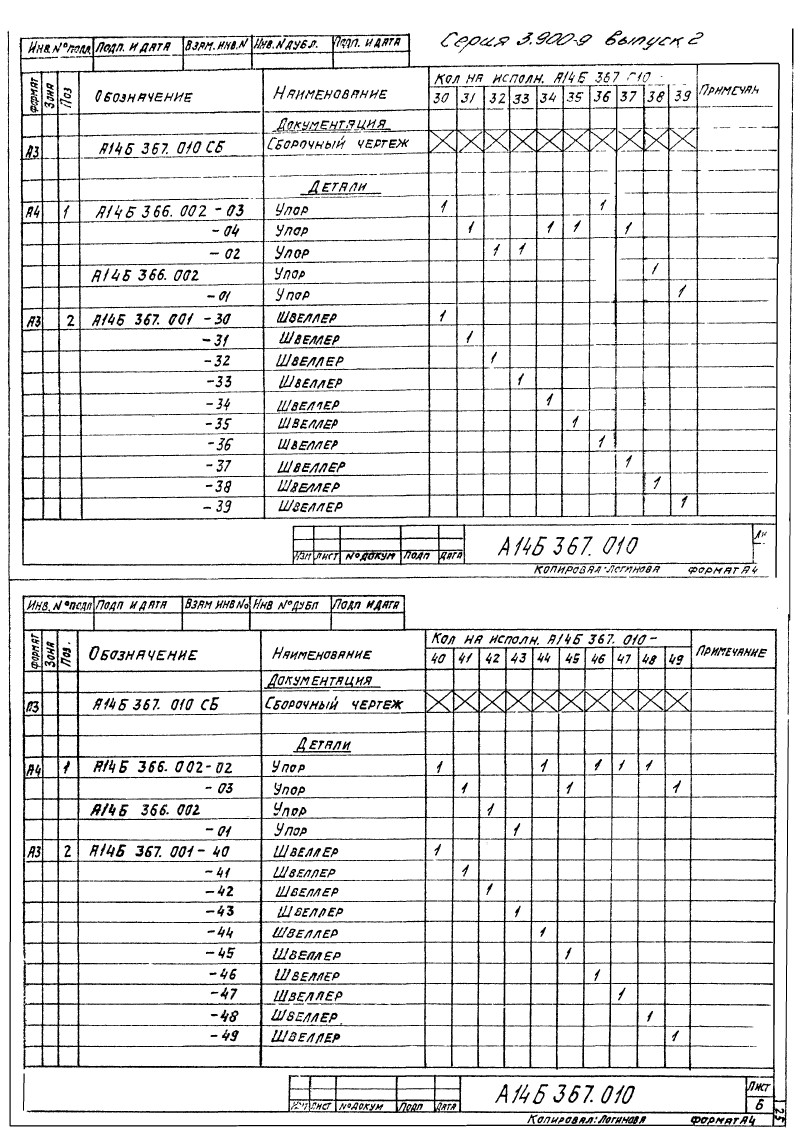 Серия 3.900-9 выпуск 2
Инв. N° подл. Подп. и дата Взам. инв. N Инв. N дубл. Подп. и дата
Формат Зона Поз Обозначение Наименование Кол на исполн. А14Б 367 010 - Примечан
30 31 32 33 34 35 36 37 38 39
Документация
А3 А14Б 367. 010 СБ Сборочный чертеж
Детали
А4 1 А14Б 366. 002 - 03 Упор 1 1
- 04 Упор 1 1 1 1
- 02 Упор 1 1
А14Б 366. 002 Упор 1
- 01 Упор 1
А3 2 А14Б 367. 001 - 30 Швеллер 1
- 31 Швеллер 1
- 32 Швеллер 1
- 33 Швеллер 1
- 34 Швеллер 1
- 35 Швеллер 1
- 36 Швеллер 1
- 37 Швеллер 1
- 38 Швеллер 1
- 39 Швеллер 1
Изм Лист N° докум Подп Дата А14Б 367. 010
Копировал: Логинова Формат А4
Инв. N° подл Подп и дата Взам инв N° Инв N° дубл Подп и дата
Формат Зона Поз. Обозначение Наименование Кол на исполн. А14Б 367. 010 - Примечание
40 41 42 43 44 45 46 47 48 49
Документация
А3 А14Б 367. 010 СБ Сборочный чертеж
Детали
А4 1 А14Б 366. 002 - 02 Упор 1 1 1 1 1
- 03 Упор 1 1 1
А14Б 366. 002 Упор 1
- 01 Упор 1
А3 2 А14Б 367. 001 - 40 Швеллер 1
- 41 Швеллер 1
- 42 Швеллер 1
- 43 Швеллер 1
- 44 Швеллер 1
- 45 Швеллер 1
- 46 Швеллер 1
- 47 Швеллер 1
- 48 Швеллер 1
- 49 Швеллер 1
Изм Лист N° докум Подп Дата А14Б 367. 010 Лист 6
Копировал: Логинова Формат А4
25